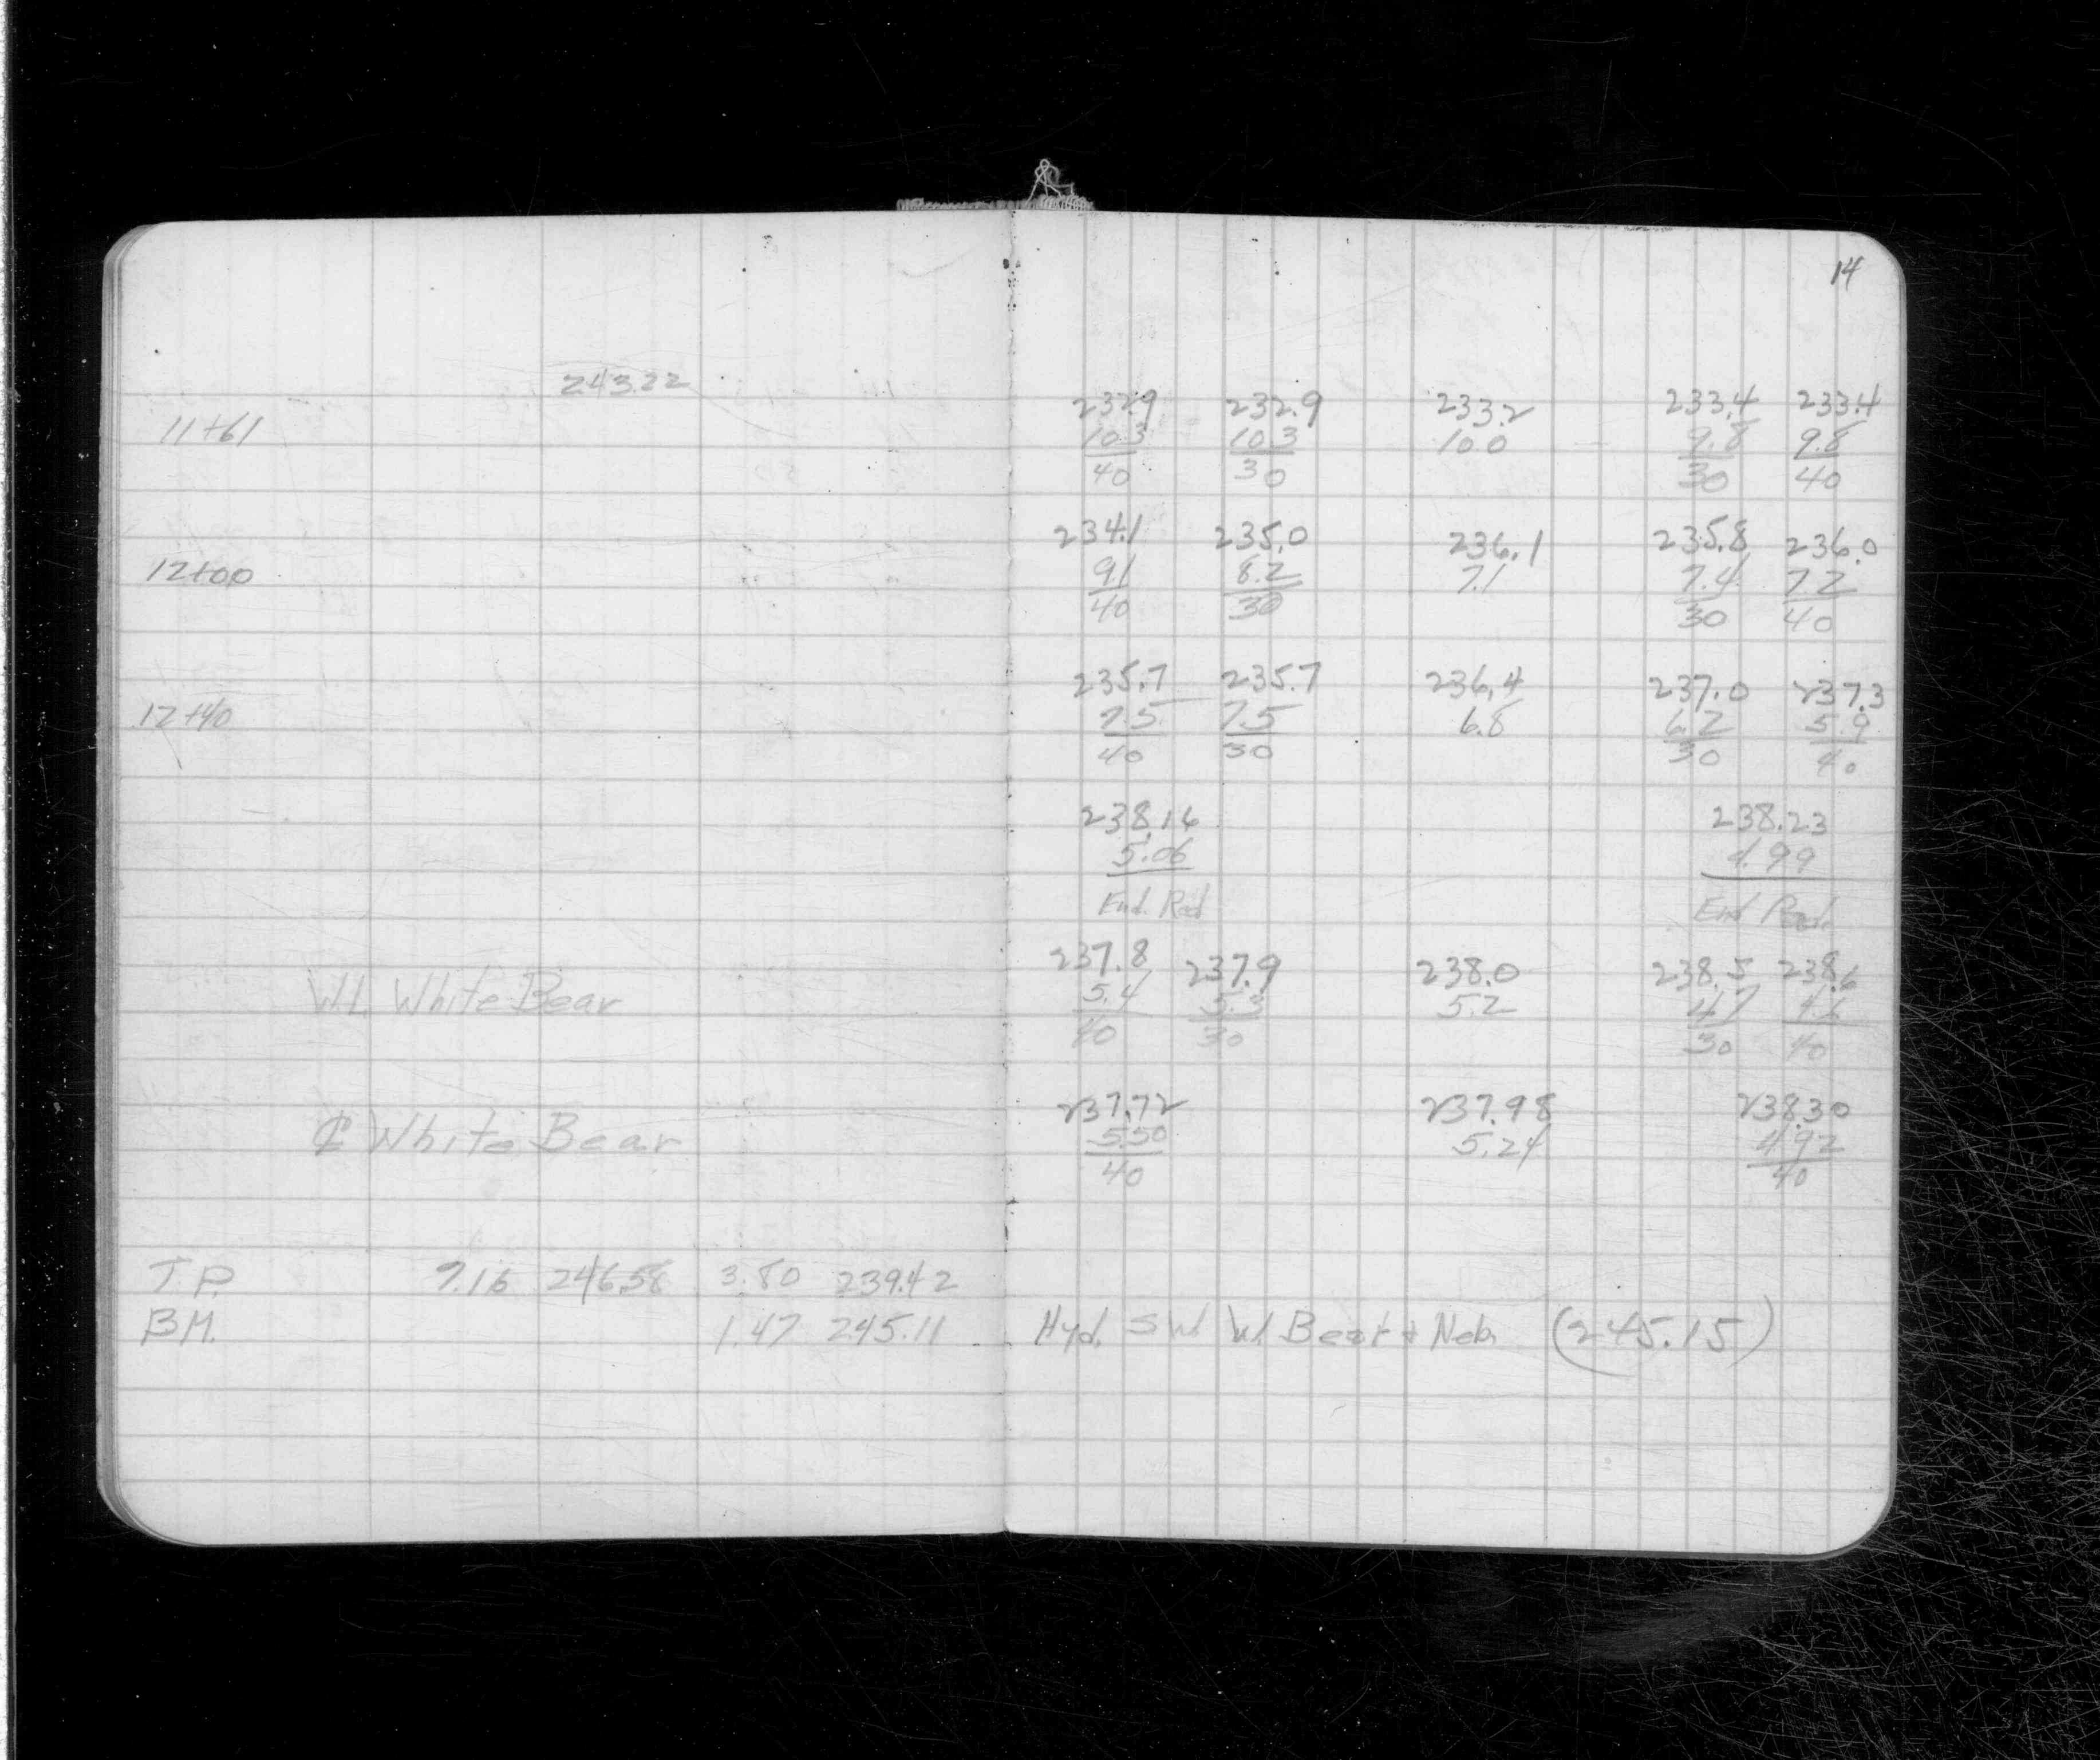 14
243.22
232.9 232.9 233.2 233.4 233.4
11+61 10.3 10.3 10.0 9.8 9.8
40 30 30 40
234.1 235.0 236.1 235.8 236.0
12+00 9.1 8.2 7.1 7.4 7.2
40 30 30 40
235.7 235.7 236.4 237.0 237.3
12+40 7.5 7.5 6.8 6.2 5.9
40 30 30 40
238.16 238.23
5.06 4.99
End. Rad End Rad.
237.8 237.9 238.0 238.5 238.6
W.L. White Bear 5.4 5.3 5.2 4.7 4.6
40 30 30 40
237.72 237.98 238.30
₵ White Bear 5.50 5.24 4.92
40 40
T.P. 7.16 246.58 3.80 239.42
B.M. 1.47 245.11 Hyd. S W W. Bear + Neb. (245.15)